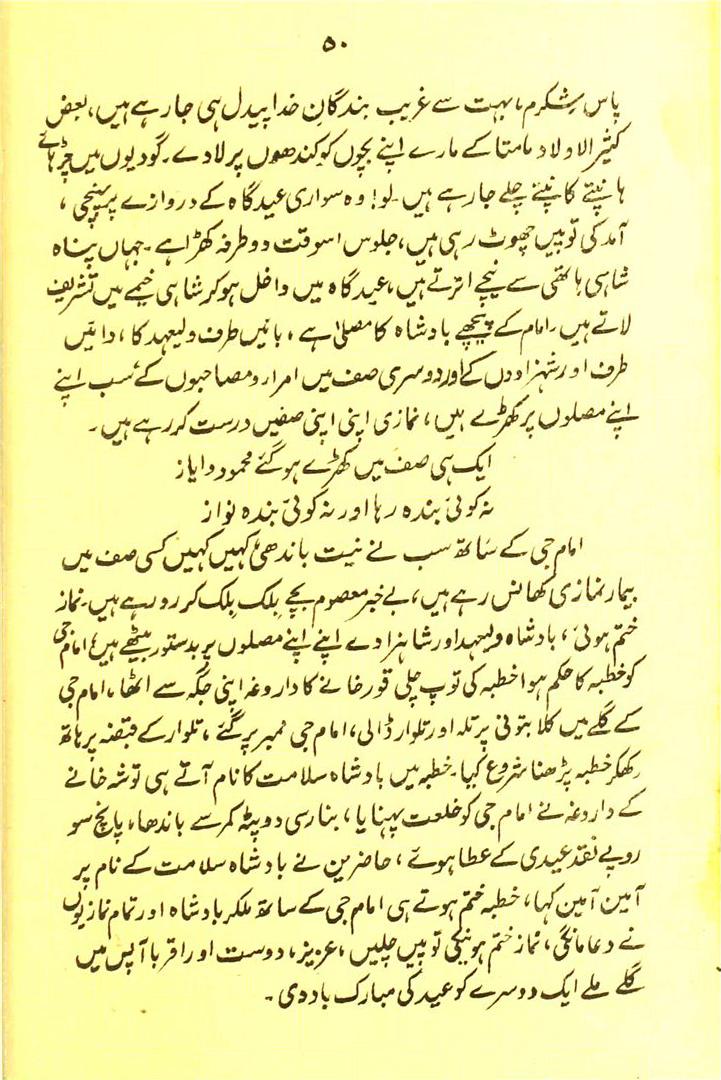 ۵۰
پاس شِکرم، بہت سے غریب بندگانِ خدا پیدل ہی جارہے ہیں، بعض
کثیر الاولاد مامتا کے مارے اپنے بچوں کو کندھوں پر لادے۔ گودیوں میں چڑہائے
ہانپتے کانپتے چلے جارہے ہیں۔ لو! وہ سواری عیدگاہ کے دروازے پر پہنچی،
آمد کی توپیں چھوٹ رہی ہیں، جلوس اسوقت دوطرفہ کھڑا ہے۔ جہاں پناہ
شاہی ہاتھی سے نیچے اترتے ہیں، عیدگاہ میں داخل ہوکر شاہی خیمے میں تشریف
لاتے ہیں۔ امام کے پیچھے بادشاہ کا مصلیٰ ہے، بائیں طرف ولیعہد کا، دائیں
طرف اور شہزادوں کے اور دوسری صف میں امراء و مصاحبوں کے سب اپنے
اپنے مصلوں پر کھڑے ہیں، نمازی اپنی اپنی صفیں درست کررہے ہیں۔
ایک ہی صف میں کھڑے ہوگئے محمود و ایاز
نہ کوئی بندہ رہا اور نہ کوئی بندہ نواز
امام جی کے ساتھ سب نے نیت باندھی، کہیں کہیں کسی صف میں
بیمار نمازی کھانس رہے ہیں، بے خبر معصوم بچے بلک بلک کر رو رہے ہیں۔ نماز
ختم ہوئی، بادشاہ ولیعہد اور شاہزادے اپنے اپنے مصلوں پر بدستور بیٹھے ہیں، امام جی
کو خطبہ کا حکم ہوا خطبہ کی توپ چلی قورخانے کا داروغہ اپنی جگہ سے اٹھا، امام جی
کے گلے میں کلابتونی پرتلہ اور تلوار ڈالی، امام جی ممبر پر گئے، تلوار کے قبضہ پر ہاتھ
رکھکر خطبہ پڑھنا شروع کیا۔ خطبہ میں بادشاہ سلامت کا نام آتے ہی توشہ خانے
کے داروغہ نے امام جی کو خلعت پہنایا، بنارسی دوپٹہ کمر سے باندھا، پانچ سو
روپے نقد عیدی کے عطا ہوئے، حاضرین نے بادشاہ سلامت کے نام پر
آمین آمین کہا، خطبہ ختم ہوتے ہی امام جی کے ساتھ ملکر بادشاہ اور تمام نمازیوں
نے دعا مانگی، نماز ختم ہونیکی توپیں چلیں، عزیز، دوست اور اقربا آپس میں
گلے ملے ایک دوسرے کو عید کی مبارک باد دی۔